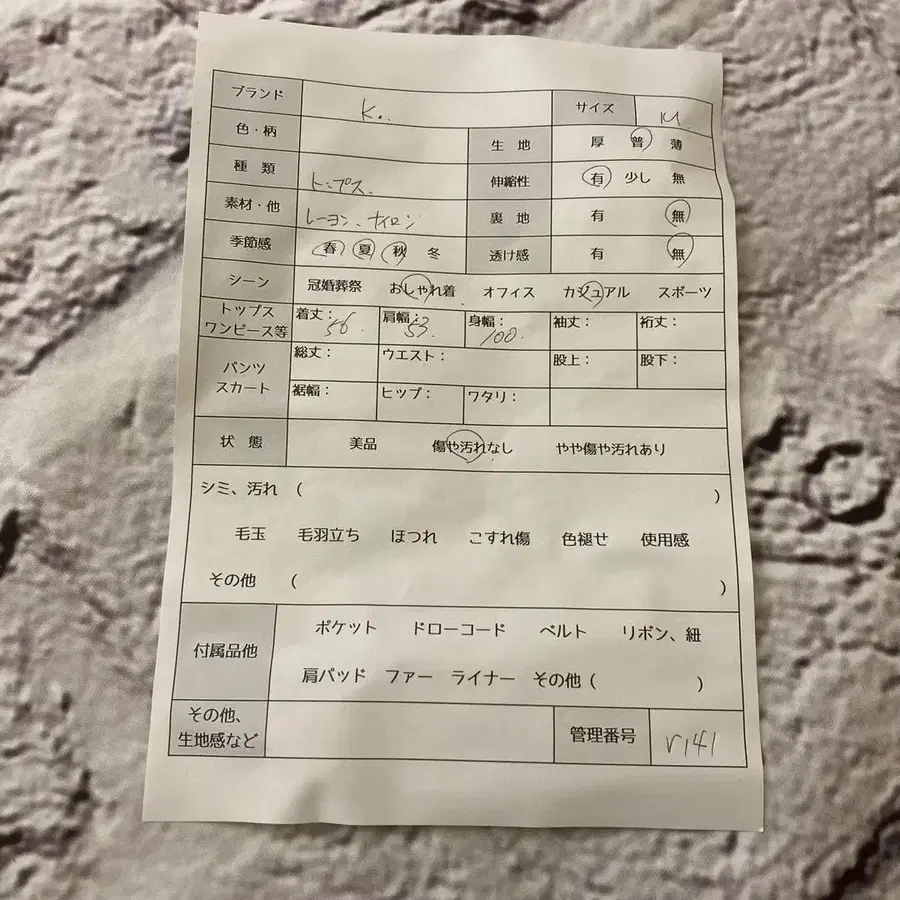 ブランド K.. サイズ M
色・柄 生地 厚 普 薄
種類 トップス. 伸縮性 有 少し 無
素材・他 レーヨン、ナイロン 裏地 有 無
季節感 春 夏 秋 冬 透け感 有 無
シーン 冠婚葬祭 おしゃれ着 オフィス カジュアル スポーツ
トップス
ワンピース等 着丈: 56. 肩幅: 53. 身幅: 100. 袖丈: 裄丈:
パンツ
スカート 総丈: ウエスト: 股上: 股下:
裾幅: ヒップ: ワタリ:
状態 美品 傷や汚れなし やや傷や汚れあり
シミ、汚れ ( )
毛玉 毛羽立ち ほつれ こすれ傷 色褪せ 使用感
その他 ( )
付属品他 ポケット ドローコード ベルト リボン、紐
肩パッド ファー ライナー その他 ( )
その他、
生地感など 管理番号 r141